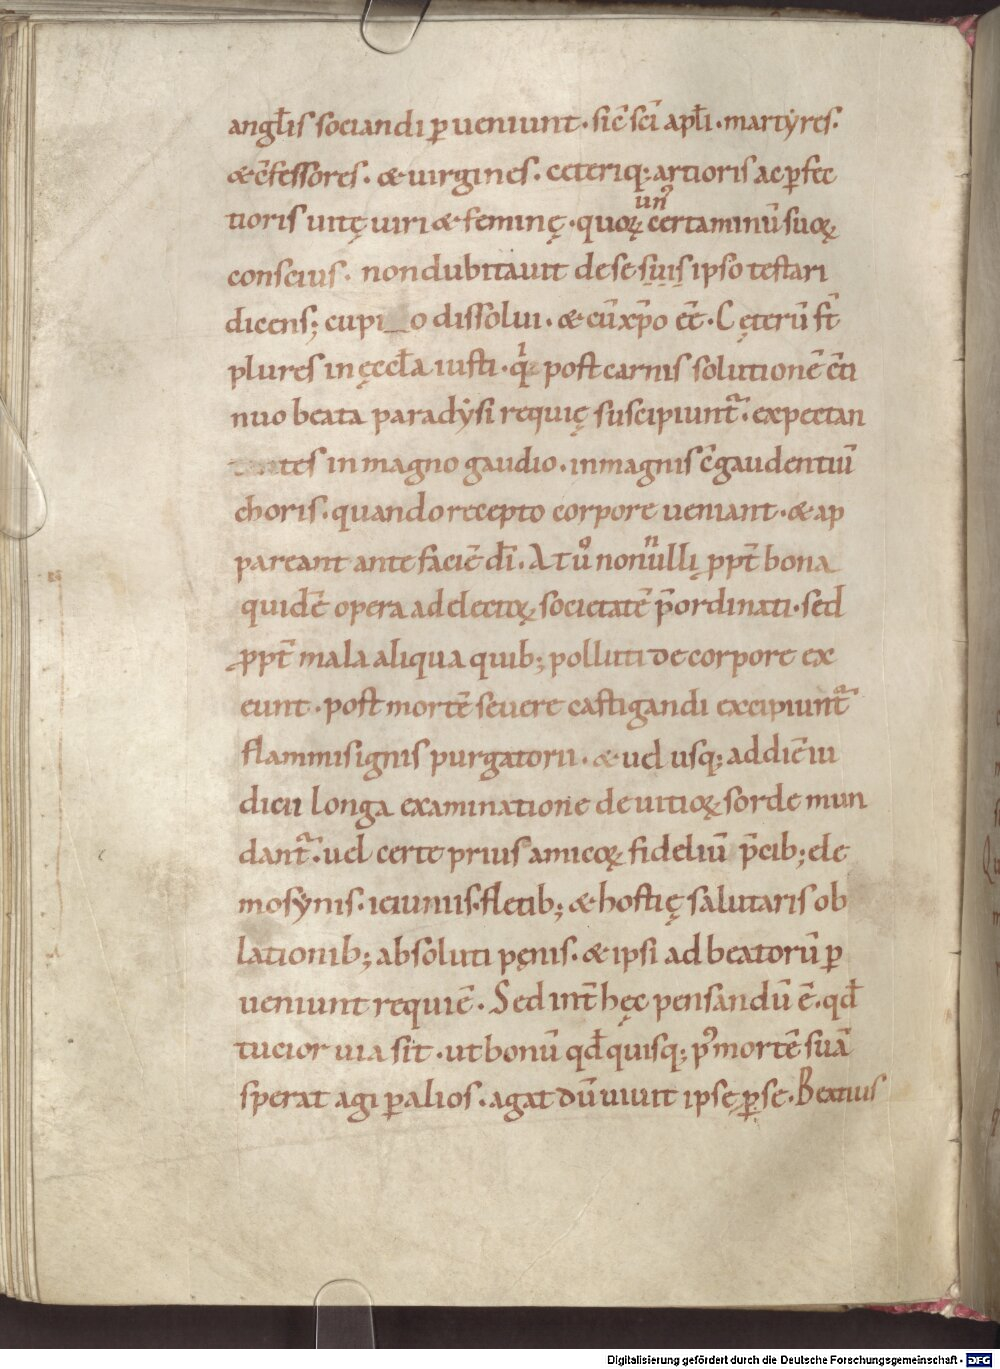 angl̄is sociandi ꝑueniunt · sic̄ sc̄i apl̄i · martẏres ·
& c̄fessores · & uirgines · ceteriq; artioris ac ꝑfec
tioris uitę uiri & feminę · quoꝝ certaminū suoꝝ
un᷒
conscius · non dubitauit de se suis ipso testari
dicens; cupi_o dissolui · & cū xp̄o ēē · Cęterū st̄
plures in ęccl̄a iusti · qͥ post carnis solutionē c̄ti
nuo beata paradẏsi requię suscipiunt᷑ · expectan
tes in magno gaudio · in magnis c̄gaudentiū
choris · quando recepto corpore ueniant · & ap
pareant ante faciē dī · At ūo nonnulli ꝓpt̄ bona
quidē opera ad electoꝝ societatē p̄ordinati · sed
ꝓpt̄ mala aliqua quib; polluti de corpore ex
eunt · post mortē seuere castigandi excipiunt᷑
flammis ignis purgatorii · & uel usq; ad diē iu
dicii longa examinatione de uitioꝝ sorde mun
dant᷑ · uel certe prius amicoꝝ fideliū p̄cib; ele
mosẏnis · ieiuniis · fletib; & hostię salutaris ob
lationib; absoluti pęnis · & ipsi ad beatorū ꝑ
ueniunt requiē · Sed int̄ hęc pensandū ē · qd̄
tucior uia sit · ut bonū qd̄ quisq; p᷒ mortē suā
sperat agi ꝑ alios · agat dū uiuit ipse ꝑ se · Beatius
Digitalisierung gefördert durch die Deutsche Forschungsgemeinschaft - DFG